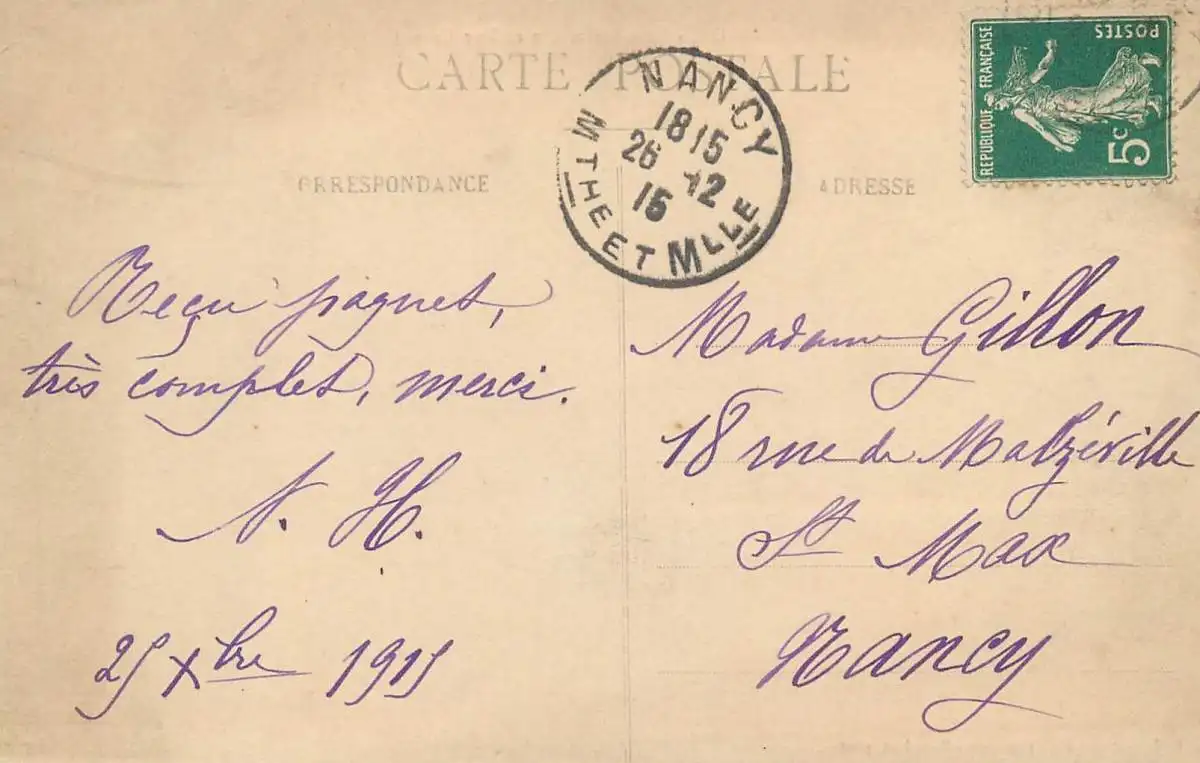 CARTE POSTALE
CORRESPONDANCE
ADRESSE
NANCY
1815
26 -12
15
MTHE ET MLLE
RÉPUBLIQUE FRANÇAISE
POSTES
5c
Reçu paquet,
très complet, merci.
N. H.
25 Xbre 1915
Madame Gillon
18 rue de Malzéville
St Max
Nancy